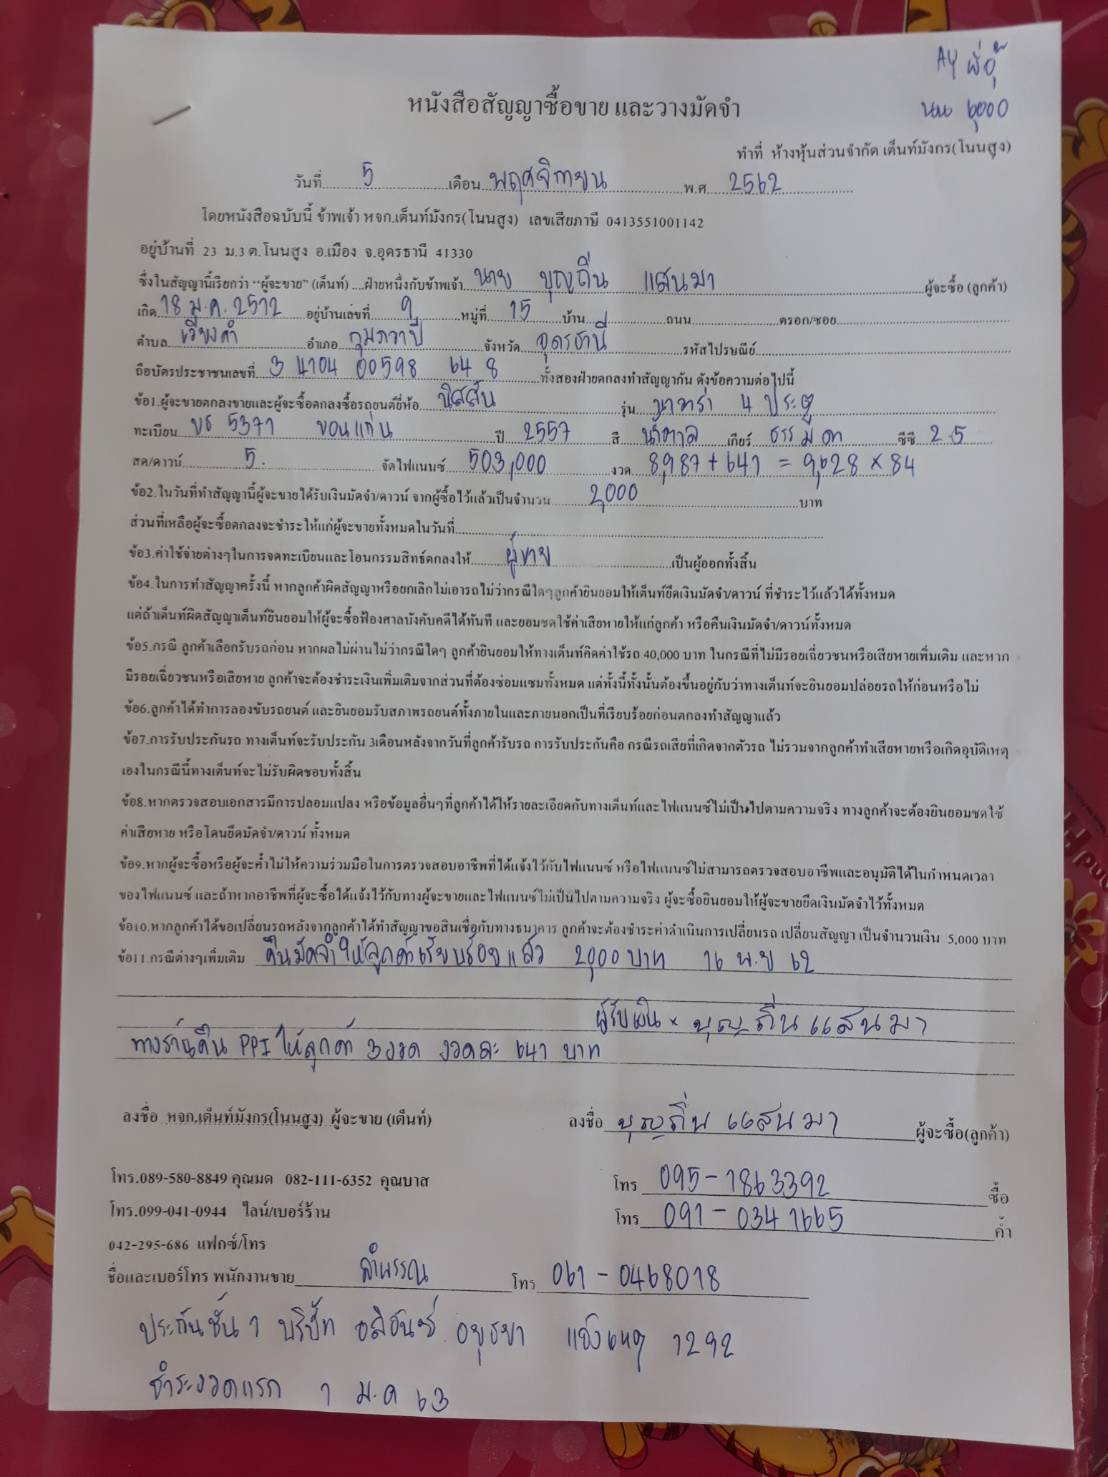 AY พี่อุ๊
นน 6,000
หนังสือสัญญาซื้อขาย และวางมัดจำ
ทำที่ ห้างหุ้นส่วนจำกัด เต็นท์มังกร(โนนสูง)
วันที่ 5 เดือน พฤศจิกายน พ.ศ 2562
โดยหนังสือฉบับนี้ ข้าพเจ้า หจก.เต็นท์มังกร(โนนสูง) เลขเสียภาษี 0413551001142
อยู่บ้านที่ 23 ม.3 ต.โนนสูง อ.เมือง จ.อุดรธานี 41330
ซึ่งในสัญญานี้เรียกว่า "ผู้จะขาย" (เต็นท์) ....ฝ่ายหนึ่งกับข้าพเจ้า นาย บุญถิ่น แสนมา ผู้จะซื้อ (ลูกค้า)
เกิด 18 ม.ค. 2512 อยู่บ้านเลขที่ 9 หมู่ที่ 15 บ้าน ถนน ตรอก/ซอย
ตำบล เวียงคำ อำเภอ กุมภวาปี จังหวัด อุดรธานี รหัสไปรษณีย์
ถือบัตรประชาชนเลขที่ 3 4104 00598 64 8 ทั้งสองฝ่ายตกลงทำสัญญากัน ดังข้อความต่อไปนี้
ข้อ1.ผู้จะขายตกลงขายและผู้จะซื้อตกลงซื้อรถยนต์ยี่ห้อ นิสสัน รุ่น นาวาร่า 4 ประตู
ทะเบียน บธ 5371 ขอนแก่น ปี 2557 สี น้ำตาล เกียร์ ธรรมดา ซีซี 2.5
สด/ดาวน์ 5. จัดไฟแนนซ์ 503,000 งวด 8,987 + 641 = 9,628 × 84
ข้อ2.ในวันที่ทำสัญญานี้ผู้จะขายได้รับเงินมัดจำ/ดาวน์ จากผู้ซื้อไว้แล้วเป็นจำนวน 2,000 บาท
ส่วนที่เหลือผู้จะซื้อตกลงจะชำระให้แก่ผู้จะขายทั้งหมดในวันที่
ข้อ3.ค่าใช้จ่ายต่างๆในการจดทะเบียนและโอนกรรมสิทธ์ตกลงให้ ผู้ขาย เป็นผู้ออกทั้งสิ้น
ข้อ4.ในการทำสัญญาครั้งนี้ หากลูกค้าผิดสัญญาหรือยกเลิกไม่เอารถไม่ว่ากรณีใดๆลูกค้ายินยอมให้เต็นท์ยึดเงินมัดจำ/ดาวน์ ที่ชำระไว้แล้วได้ทั้งหมด
แต่ถ้าเต็นท์ผิดสัญญาเต็นท์ยินยอมให้ผู้จะซื้อฟ้องศาลบังคับคดีได้ทันที และยอมชดใช้ค่าเสียหายให้แก่ลูกค้า หรือคืนเงินมัดจำ/ดาวน์ทั้งหมด
ข้อ5.กรณี ลูกค้าเลือกรับรถก่อน หากผลไม่ผ่านไม่ว่ากรณีใดๆ ลูกค้ายินยอมให้ทางเต็นท์คิดค่าใช้รถ 40,000 บาท ในกรณีที่ไม่มีรอยเฉี่ยวชนหรือเสียหายเพิ่มเติม และหาก
มีรอยเฉี่ยวชนหรือเสียหาย ลูกค้าจะต้องชำระเงินเพิ่มเติมจากส่วนที่ต้องซ่อมแซมทั้งหมด แต่ทั้งนี้ทั้งนั้นต้องขึ้นอยู่กับว่าทางเต็นท์จะยินยอมปล่อยรถให้ก่อนหรือไม่
ข้อ6.ลูกค้าได้ทำการลองขับรถยนต์ และยินยอมรับสภาพรถยนต์ทั้งภายในและภายนอกเป็นที่เรียบร้อยก่อนตกลงทำสัญญาแล้ว
ข้อ7.การรับประกันรถ ทางเต็นท์จะรับประกัน 3เดือนหลังจากวันที่ลูกค้ารับรถ การรับประกันคือ กรณีรถเสียที่เกิดจากตัวรถ ไม่รวมจากลูกค้าทำเสียหายหรือเกิดอุบัติเหตุ
เองในกรณีนี้ทางเต็นท์จะไม่รับผิดชอบทั้งสิ้น
ข้อ8.หากตรวจสอบเอกสารมีการปลอมแปลง หรือข้อมูลอื่นๆที่ลูกค้าได้ให้รายละเอียดกับทางเต็นท์และไฟแนนซ์ไม่เป็นไปตามความจริง ทางลูกค้าจะต้องยินยอมชดใช้
ค่าเสียหาย หรือโดนยึดมัดจำ/ดาวน์ ทั้งหมด
ข้อ9.หากผู้จะซื้อหรือผู้จะค้ำไม่ให้ความร่วมมือในการตรวจสอบอาชีพที่ได้แจ้งไว้กับไฟแนนซ์ หรือไฟแนนซ์ไม่สามารถตรวจสอบอาชีพและอนุมัติได้ในกำหนดเวลา
ของไฟแนนซ์ และถ้าหากอาชีพที่ผู้จะซื้อได้แจ้งไว้กับทางผู้จะขายและไฟแนนซ์ไม่เป็นไปตามความจริง ผู้จะซื้อยินยอมให้ผู้จะขายยึดเงินมัดจำไว้ทั้งหมด
ข้อ10.หากลูกค้าได้ขอเปลี่ยนรถหลังจากลูกค้าได้ทำสัญญาขอสินเชื่อกับทางธนาคาร ลูกค้าจะต้องชำระค่าดำเนินการเปลี่ยนรถ เปลี่ยนสัญญา เป็นจำนวนเงิน 5,000 บาท
ข้อ11.กรณีต่างๆเพิ่มเติม คืนมัดจำให้ลูกค้าเรียบร้อยแล้ว 2,000 บาท 16 พ.ย 62
ผู้รับเงิน × บุญถิ่น แสนมา
ทางร้านคืน PPI ให้ลูกค้า 3 งวด งวดละ 641 บาท
ลงชื่อ หจก.เต็นท์มังกร(โนนสูง) ผู้จะขาย (เต็นท์) ลงชื่อ บุญถิ่น แสนมา ผู้จะซื้อ(ลูกค้า)
โทร.089-580-8849 คุณมด 082-111-6352 คุณบาส โทร 095-1863392 ซื้อ
โทร.099-041-0944 ไลน์/เบอร์ร้าน โทร 091-0341665 ค้ำ
042-295-686 แฟกซ์/โทร
ชื่อและเบอร์โทร พนักงานขาย ลำพรรณ โทร 061-0468018
ประกันชั้น 1 บริษัท อลิอันซ์ อยุธยา แจ้งเหตุ 1292
ชำระงวดแรก 1 ม.ค 63